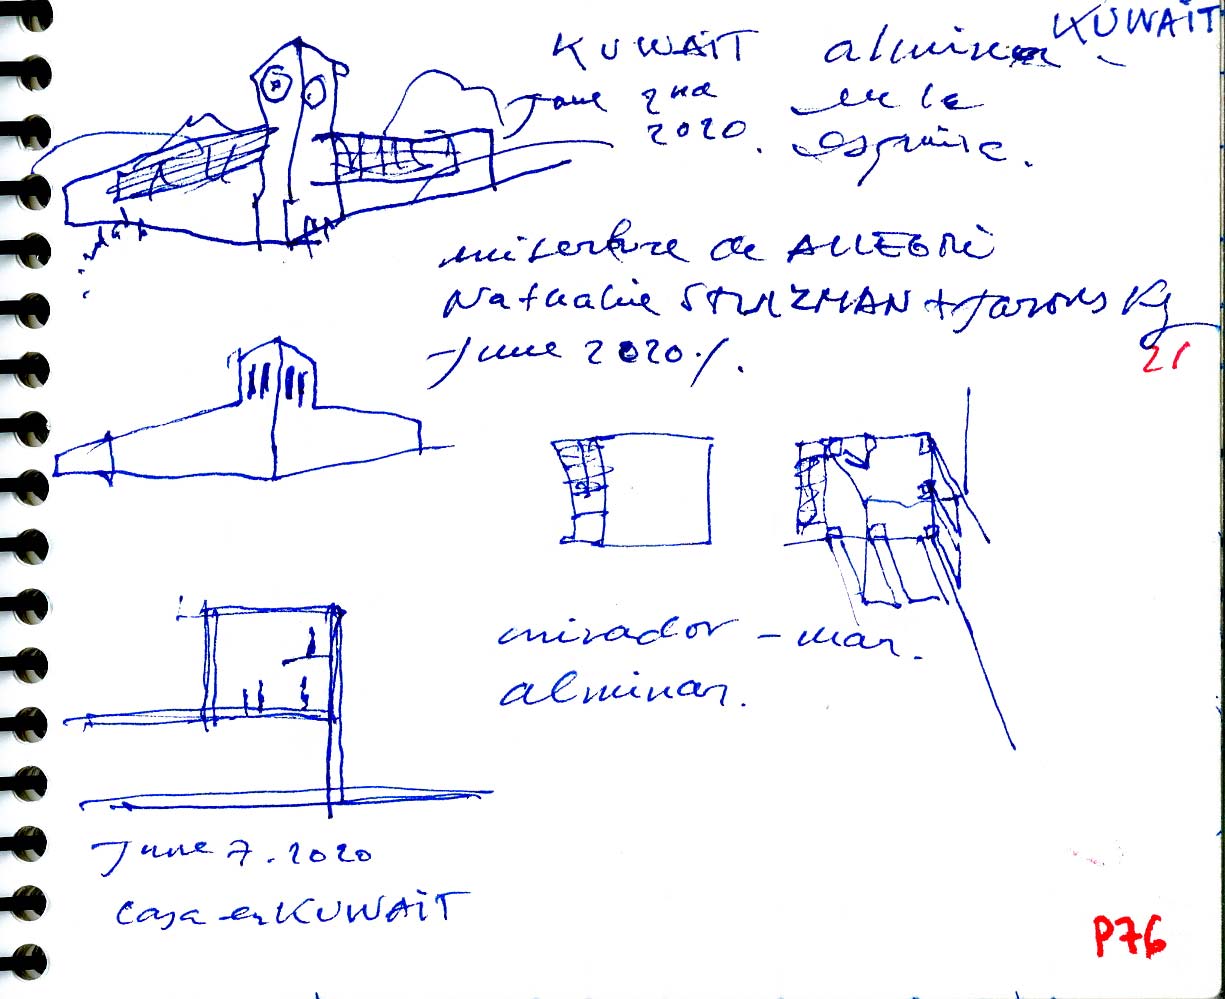 KUWAIT
KUWAIT alminar
June 2nd en la
2020. esquina.
miserere de ALLEGRI
Nathalie STUZMAN + Jarousky
21
June 2020/.
mirador - mar.
alminar.
June 7. 2020
casa en KUWAIT
P76